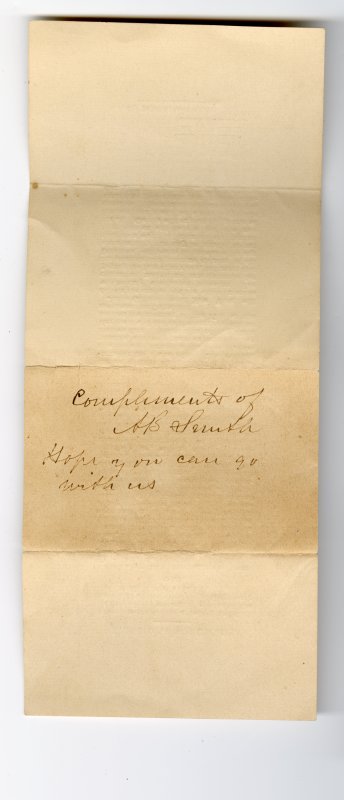 Compliments of
AB Smith
Hope you can go
with us